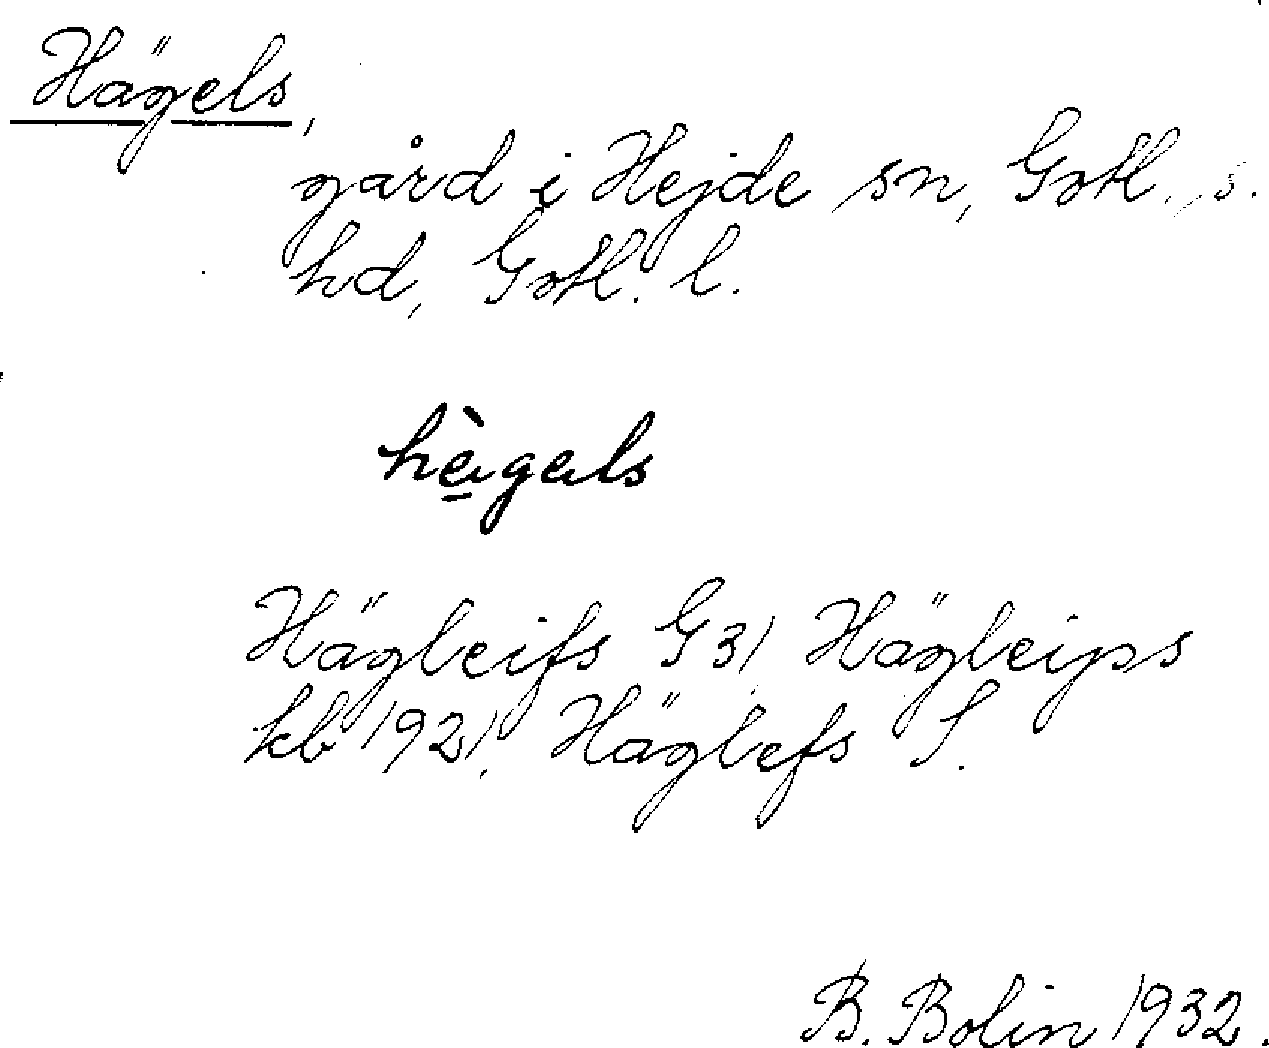 Hägels,
gård i Hejde sn, Gotl. s.
hd, Gotl. l.
hègals
Hägleifs G31 Hägleips
kb 1921. Häglefs S.
B. Bolin 1932.